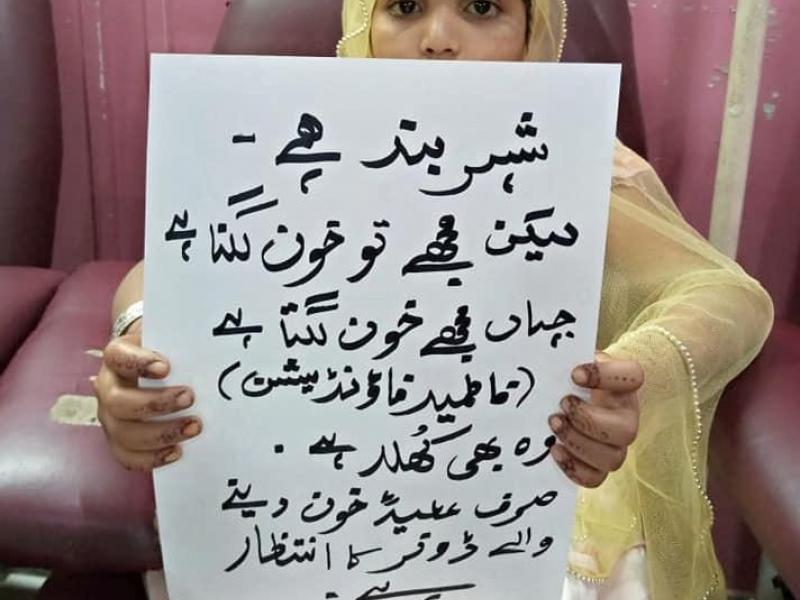 شہر بند ہے -
لیکن مجھے تو خون لگنا ہے
جہاں مجھے خون لگتا ہے
(فاطمید فاؤنڈیشن)
وہ بھی کُھلا ہے .
صرف عطیئہ خون دینے
والے ڈونر کا انتظار
ہے .